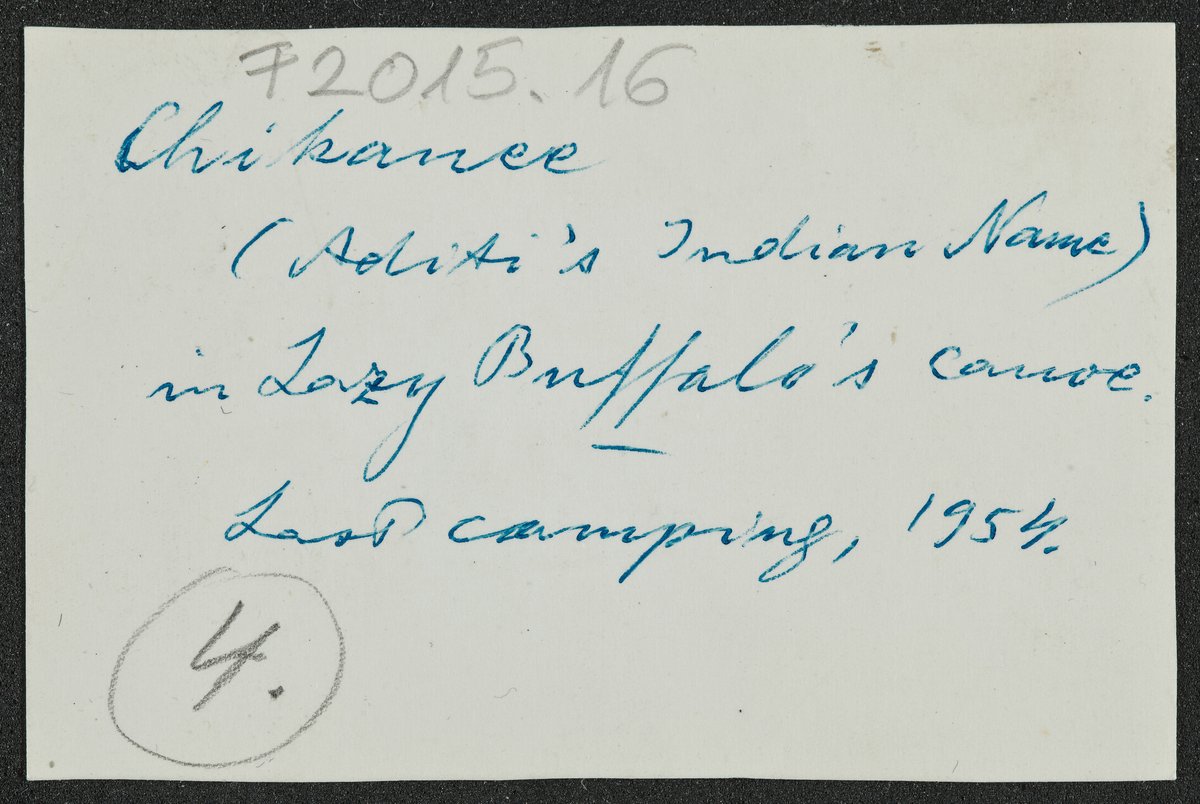 F2015.16
Chikanee
(Aditi's Indian Name)
in Lazy Buffalo's canoe.
Last camping, 1954.
4.